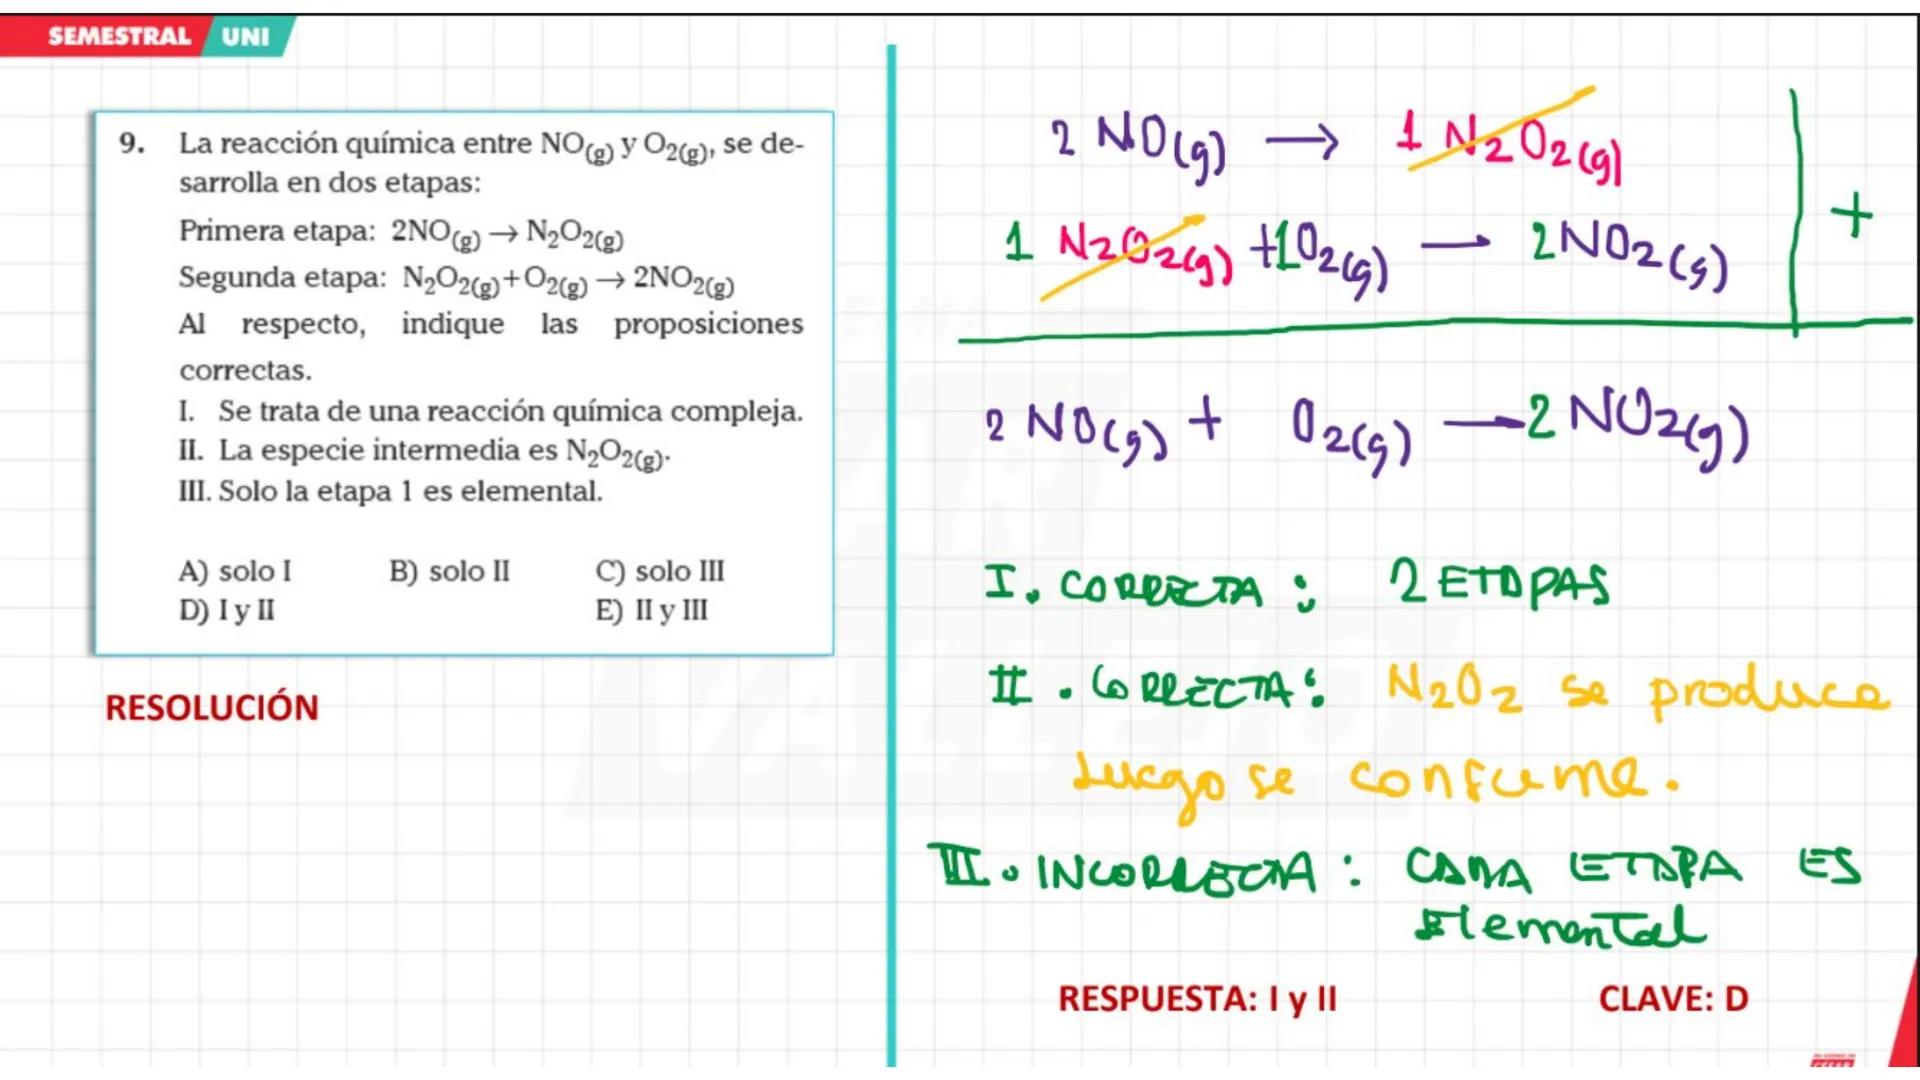 SEMESTRAL UNI
9. La reacción química entre NO(g) y O2(g), se de-
sarrolla en dos etapas:
Primera etapa: 2NO(g) → N2O2(g)
Segunda etapa: N2O2(g)+O2(g) → 2NO2(g)
Al respecto, indique las proposiciones
correctas.
I. Se trata de una reacción química compleja.
II. La especie intermedia es N2O2(g).
III. Solo la etapa 1 es elemental.
A) solo I B) solo II C) solo III
D) I y II E) II y III
RESOLUCIÓN
2 NO(g) → 1 N2O2(g)
1 N2O2(g) + 1O2(g) → 2NO2(g)
+
2 NO(g) + O2(g) → 2 NO2(g)
I. CORRECTA : 2 ETAPAS
II. CORRECTA : N2O2 se produce
Luego se consume.
III. INCORRECTA : CADA ETAPA ES
Elemental
RESPUESTA: I y II CLAVE: D